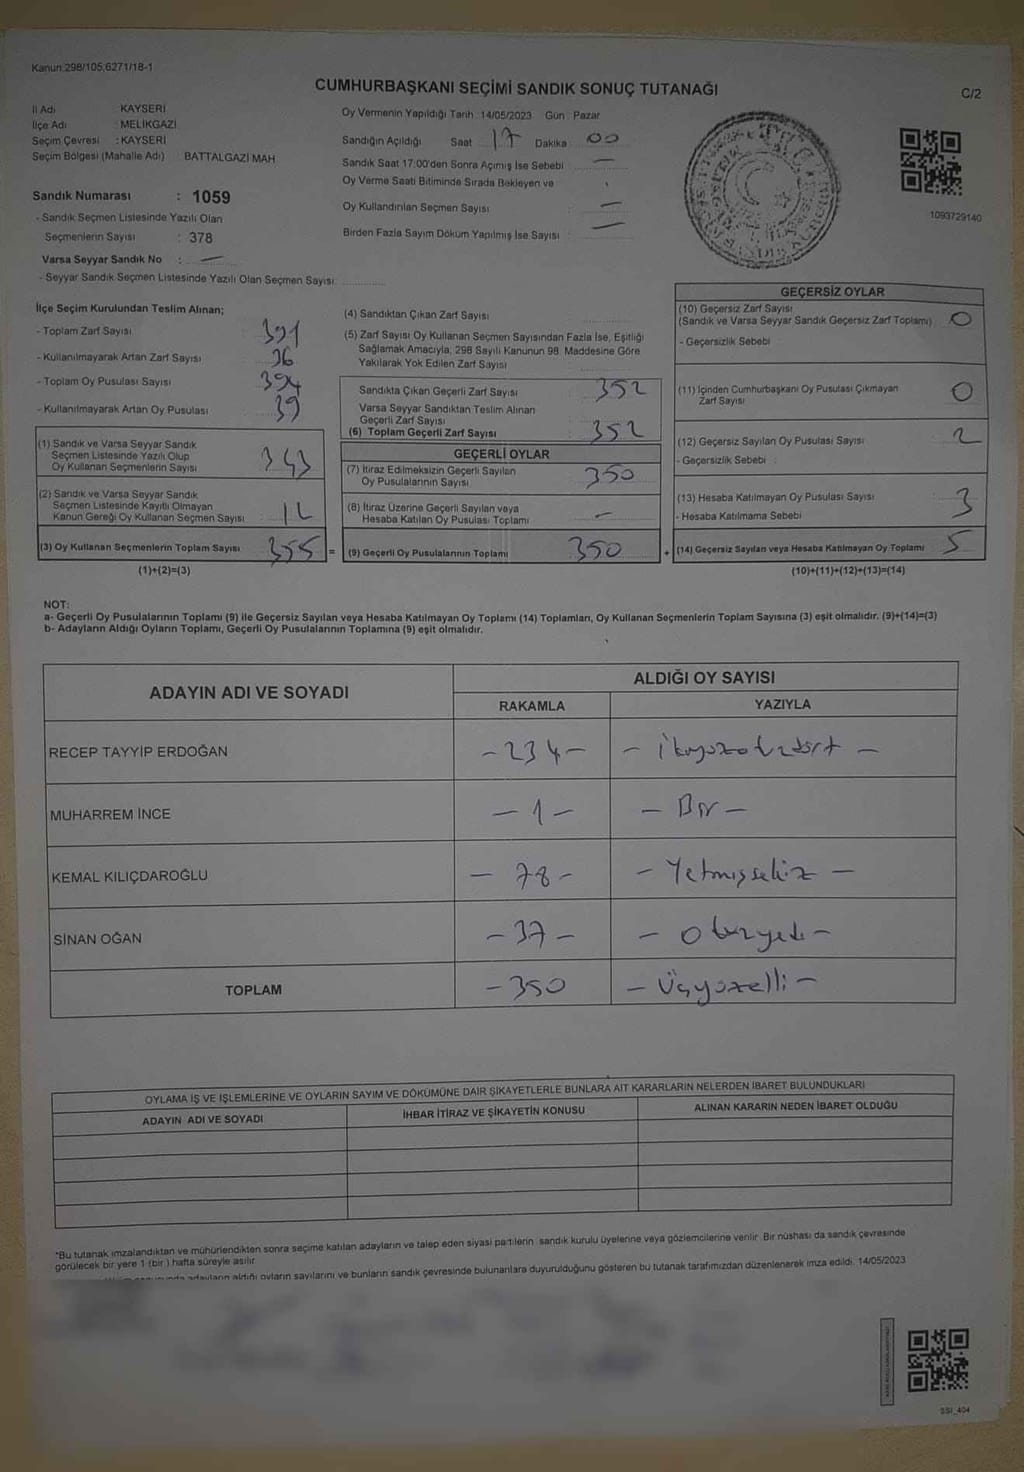 Kanun:298/105;6271/18-1
CUMHURBAŞKANI SEÇİMİ SANDIK SONUÇ TUTANAĞI
C/2
İl Adı : KAYSERİ
İlçe Adı : MELİKGAZİ
Seçim Çevresi : KAYSERİ
Seçim Bölgesi (Mahalle Adı) : BATTALGAZİ MAH
Sandık Numarası : 1059
- Sandık Seçmen Listesinde Yazılı Olan
Seçmenlerin Sayısı : 378
Varsa Seyyar Sandık No : —
- Seyyar Sandık Seçmen Listesinde Yazılı Olan Seçmen Sayısı: ..............
Oy Vermenin Yapıldığı Tarih : 14/05/2023 Gün : Pazar
Sandığın Açıldığı Saat 17 Dakika 00
Sandık Saat 17:00'den Sonra Açımış İse Sebebi : —
Oy Verme Saati Bitiminde Sırada Bekleyen ve
Oy Kullandırılan Seçmen Sayısı : —
Birden Fazla Sayım Döküm Yapılmış İse Sayısı : —
1093729140
İlçe Seçim Kurulundan Teslim Alınan;
- Toplam Zarf Sayısı 391
- Kullanılmayarak Artan Zarf Sayısı 36
- Toplam Oy Pusulası Sayısı 394
- Kullanılmayarak Artan Oy Pusulası 39
(1) Sandık ve Varsa Seyyar Sandık
Seçmen Listesinde Yazılı Olup
Oy Kullanan Seçmenlerin Sayısı 343
(2) Sandık ve Varsa Seyyar Sandık
Seçmen Listesinde Kayıtlı Olmayan
Kanun Gereği Oy Kullanan Seçmen Sayısı 12
(3) Oy Kullanan Seçmenlerin Toplam Sayısı 355 =
(1)+(2)=(3)
(4) Sandıktan Çıkan Zarf Sayısı
(5) Zarf Sayısı Oy Kullanan Seçmen Sayısından Fazla İse, Eşitliği
Sağlamak Amacıyla, 298 Sayılı Kanunun 98. Maddesine Göre
Yakılarak Yok Edilen Zarf Sayısı
Sandıkta Çıkan Geçerli Zarf Sayısı 352
Varsa Seyyar Sandıktan Teslim Alınan
Geçerli Zarf Sayısı
(6) Toplam Geçerli Zarf Sayısı 352
GEÇERLİ OYLAR
(7) İtiraz Edilmeksizin Geçerli Sayılan
Oy Pusulalarının Sayısı 350
(8) İtiraz Üzerine Geçerli Sayılan veya
Hesaba Katılan Oy Pusulası Toplamı —
(9) Geçerli Oy Pusulalarının Toplamı 350 +
GEÇERSİZ OYLAR
(10) Geçersiz Zarf Sayısı
(Sandık ve Varsa Seyyar Sandık Geçersiz Zarf Toplamı) 0
- Geçersizlik Sebebi
(11) İçinden Cumhurbaşkanı Oy Pusulası Çıkmayan
Zarf Sayısı 0
(12) Geçersiz Sayılan Oy Pusulası Sayısı 2
- Geçersizlik Sebebi :
(13) Hesaba Katılmayan Oy Pusulası Sayısı 3
- Hesaba Katılmama Sebebi :
(14) Geçersiz Sayılan veya Hesaba Katılmayan Oy Toplamı 5
(10)+(11)+(12)+(13)=(14)
NOT:
a- Geçerli Oy Pusulalarının Toplamı (9) ile Geçersiz Sayılan veya Hesaba Katılmayan Oy Toplamı (14) Toplamları, Oy Kullanan Seçmenlerin Toplam Sayısına (3) eşit olmalıdır. (9)+(14)=(3)
b- Adayların Aldığı Oyların Toplamı, Geçerli Oy Pusulalarının Toplamına (9) eşit olmalıdır.
ADAYIN ADI VE SOYADI
ALDIĞI OY SAYISI
RAKAMLA YAZIYLA
RECEP TAYYİP ERDOĞAN -234- - ikiyüzotuzdört -
MUHARREM İNCE -1- - Bir -
KEMAL KILIÇDAROĞLU - 78 - - Yetmişsekiz -
SİNAN OĞAN -37- - otuzyedi -
TOPLAM -350 - Üçyüzelli -
OYLAMA İŞ VE İŞLEMLERİNE VE OYLARIN SAYIM VE DÖKÜMÜNE DAİR ŞİKAYETLERLE BUNLARA AİT KARARLARIN NELERDEN İBARET BULUNDUKLARI
ADAYIN ADI VE SOYADI İHBAR İTİRAZ VE ŞİKAYETİN KONUSU ALINAN KARARIN NEDEN İBARET OLDUĞU
*Bu tutanak imzalandıktan ve mühürlendikten sonra seçime katılan adayların ve talep eden siyasi partilerin sandık kurulu üyelerine veya gözlemcilerine verilir. Bir nüshası da sandık çevresinde
görülecek bir yere 1 (bir ) hafta süreyle asılır.
adayların aldığı oyların sayılarını ve bunların sandık çevresinde bulunanlara duyurulduğunu gösteren bu tutanak tarafımızdan düzenlenerek imza edildi. 14/05/2023
SSI_404